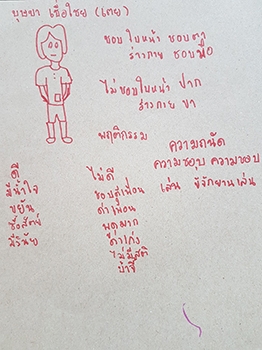 บุษบา เชื่อไชย (เตย)
ชอบ ใบหน้า ชอบตา
ร่างกาย ชอบมือ
ไม่ชอบใบหน้า ปาก
ร่างกาย ขา
พฤติกรรม
ดี
มีน้ำใจ
ขยัน
ซื่อสัตย์
มีวินัย
ไม่ดี
ชอบล้อเพื่อน
ด่าเพื่อน
พูดมาก
ด่าเก่ง
ไม่มีสติ
บ้าจี้
ความถนัด
ความชอบ ความชอบ
เล่น ขี่จักยานเล่น